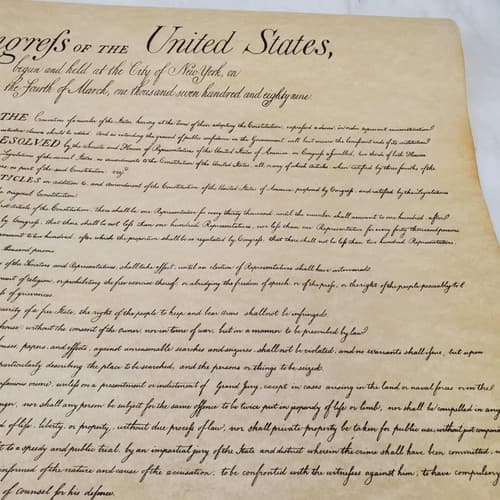 ngrefs OF THE United States,
begun and held at the City of New York, on
the Fourth of March, one thousand seven hundred and eighty nine
THE Conventions of a number of the States, having at the time of their adopting the Constitution, expressed a desire, in order to prevent misconstruction
restrictive clauses should be added: And as extending the ground of public confidence in the Government, will best ensure the beneficent ends of its institution
ESOLVED by the Senate and House of Representatives of the United States of America, in Congrefs afsembled, two thirds of both Houses
Legislatures of the several States, as amendments to the Constitution of the United States, all, or any of which articles, when ratified by three fourths of the
es, as part of the said Constitution; viz.
TICLES in addition to, and amendment of the Constitution of the United States of America, proposed by Congrefs, and ratified by the Legislatures
e original Constitution.
irst article of the Constitution, there shall be one Representative for every thirty thousand, until the number shall amount to one hundred, after
by Congrefs, that there shall be not lefs than one hundred Representatives, nor lefs than one Representative for every forty thousand persons
amount to two hundred, after which the proportion shall be so regulated by Congrefs, that there shall not be lefs than two hundred Representatives,
thousand persons
of the Senators and Representatives, shall take effect, until an election of Representatives shall have intervened.
ment of religion, or prohibiting the free exercise thereof, or abridging the freedom of speech, or of the prefs, or the right of the people peaceably to
fs of grievances.
curity of a free State, the right of the people to keep and bear arms, shall not be infringed.
house, without the consent of the owner, nor in time of war, but in a manner to be prescribed by law
ouses, papers, and effects, against unreasonable searches and seizures, shall not be violated, and no warrants shall ifsue, but upon
particularly describing the place to be searched, and the persons or things to be seized.
nfamous crime, unlefs on a presentment or indictment of Grand Jury, except in cases arising in the land or naval forces, or in the
nger, nor shall any person be subject for the same offence to be twice put in jeopardy of life or limb, nor shall be compelled in any
d of life, liberty, or property, without due procefs of law, nor shall private property be taken for public use, without just
t to a speedy and public trial, by an impartial jury of the State and district wherein the crime shall have been committed,
informed of the nature and cause of the accusation; to be confronted with the witnefses against him; to have compulsory
of counsel for his defence.